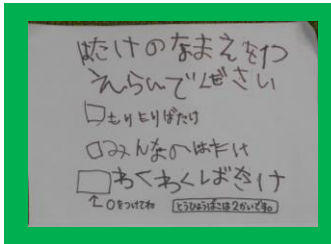 はたけのなまえを1つ
えらんでください
□もりとりばたけ
□みんなのはたけ
□わくわくしばたけ
↑○をつけてね とうひょうばこは2かいです。